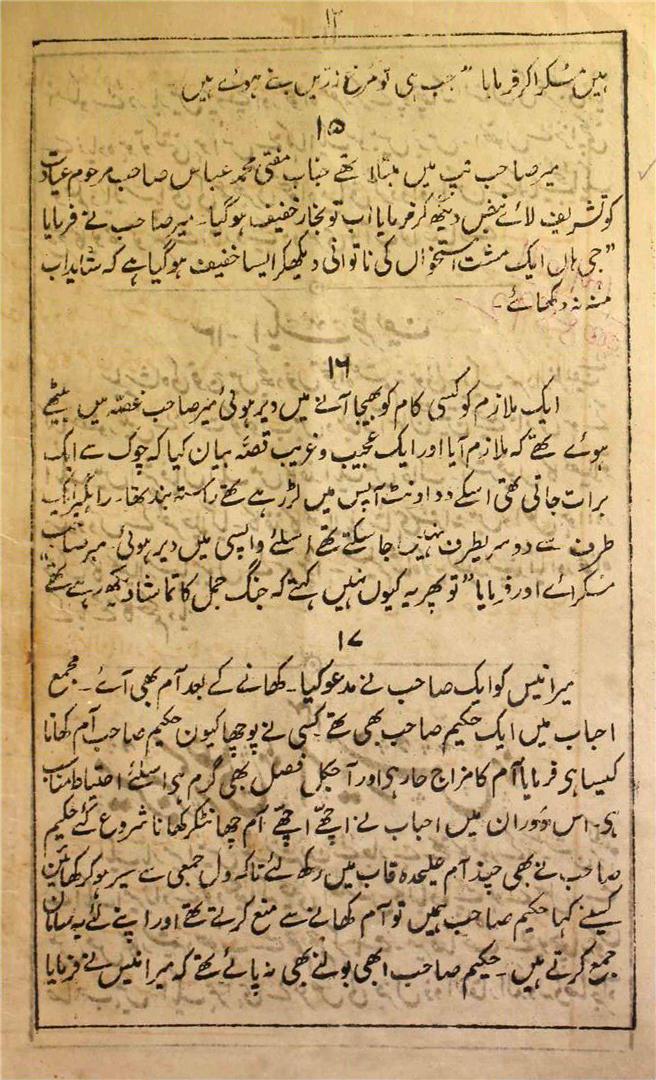 ۱۳
ہیں مسکرا کر فرمایا ”جب ہی تو مرغ زریں بنے ہوئے ہیں
۱۵
میر صاحب تپ میں مبتلا تھے جناب مفتی محمد عباس صاحب مرحوم عیادت
کو تشریف لائے نبض دیکھ کر فرمایا اب تو بخار خفیف ہو گیا۔ میر صاحب نے فرمایا
”جی ہاں ایک مشت استخواں کی ناتوانی دیکھکر ایسا خفیف ہو گیا ہے کہ شاید اب
منہ نہ دکھائے۔
۱۶
ایک ملازم کو کسی کام کو بھیجا آنے میں دیر ہوئی میر صاحب غصہ میں بیٹھے
ہوئے تھے کہ ملازم آیا اور ایک عجیب و غریب قصّہ بیان کیا کہ چوک سے ایک
برات جاتی تھی اسکے دو اونٹ آپس میں لڑ رہے تھے رستہ بند تھا۔ راہگیر ایک
طرف سے دوسریطرف نہیں جا سکتے تھے اسلئے واپسی میں دیر ہوئی میر صاحب
مسکرائے اور فرمایا ”تو پھر یہ کیوں نہیں کہتے کہ جنگ جمل کا تماشا دیکھ رہے تھے“
۱۷
میر انیس کو ایک صاحب نے مدعو کیا۔ کھانے کے بعد آم بھی آئے۔ مجمع
احباب میں ایک حکیم صاحب بھی تھے کسی نے پوچھا کیوں حکیم صاحب آم کھانا
کیسا ہی فرمایا آم کا مزاج حار ہی اور آجکل فصل بھی گرم ہی اسلئے احتیاط مناسب
ہی۔ اس دوران میں احباب نے اچھے اچھے آم چھانٹکر کھانا شروع کئے حکیم
صاحب نے بھی چند آم علیحدہ قاب میں رکھ لئے تاکہ دل جمعی سے سیر ہو کر کھائیں
کسینے کہا حکیم صاحب ہمیں تو آم کھانے سے منع کرتے تھے اور اپنے لئے یہ سامان
جمع کرتے ہیں۔ حکیم صاحب ابھی بولنے بھی نہ پائے تھے کہ میر انیس نے فرمایا